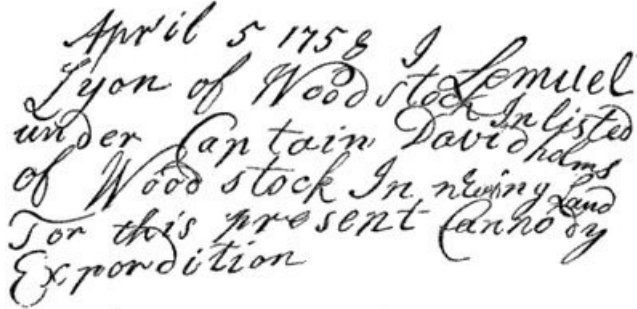 April 5 1758 I Lemuel
Lyon of Woodstock Inlisted
under Captain David holms
of Woodstock In newing Land
For this present Cannody
Expordition